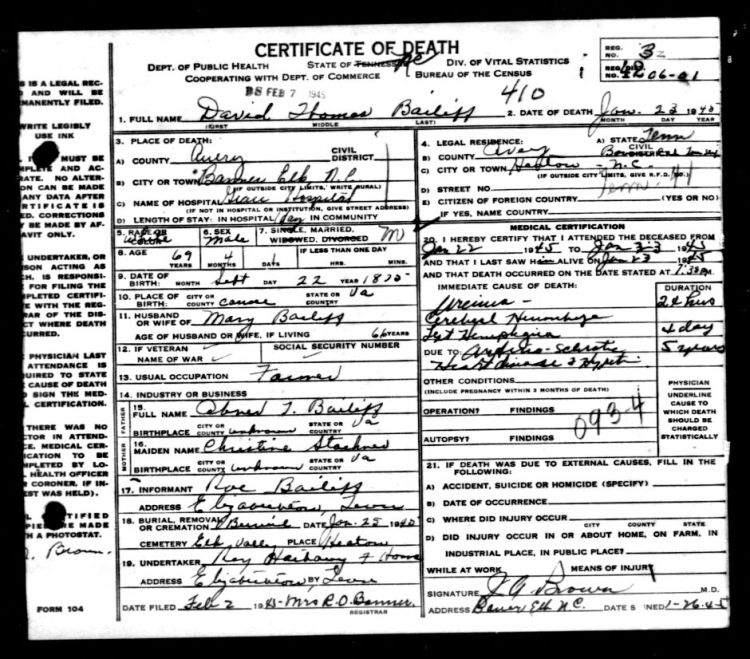 CERTIFICATE OF DEATH
DEPT. OF PUBLIC HEALTH STATE OF TENNESSEE NC DIV. OF VITAL STATISTICS
COOPERATING WITH DEPT. OF COMMERCE BUREAU OF THE CENSUS
REG. NO. 32
FEB 7 1945
410
1. FULL NAME David Thomas Bailiff 2. DATE OF DEATH Jan. 23 1945
(FIRST) (MIDDLE) (LAST) MONTH DAY YEAR
3. PLACE OF DEATH:
A) COUNTY Avery CIVIL DISTRICT
B) CITY OR TOWN Banner Elk N.C.
(IF OUTSIDE CITY LIMITS, WRITE RURAL)
C) NAME OF HOSPITAL Hospital
(IF NOT IN HOSPITAL OR INSTITUTION, GIVE STREET ADDRESS)
D) LENGTH OF STAY: IN HOSPITAL 1 day IN COMMUNITY
4. LEGAL RESIDENCE: A) STATE Tenn
B) COUNTY Avery CIVIL
C) CITY OR TOWN N.C.
(IF OUTSIDE CITY LIMITS, GIVE R.F.D. NO.)
D) STREET NO Tenn
E) CITIZEN OF FOREIGN COUNTRY (YES OR NO)
IF YES, NAME COUNTRY
5. RACE OR COLOR White 6. SEX Male 7. SINGLE, MARRIED, WIDOWED, DIVORCED M
8. AGE 69 YEARS 4 MONTHS 1 IF LESS THAN ONE DAY
HRS. MINS.
9. DATE OF BIRTH: MONTH Sept DAY 22 YEAR 1875
10. PLACE OF BIRTH: CITY OR COUNTY STATE OR COUNTRY Va
11. HUSBAND OR WIFE OF Mary Bailiff
AGE OF HUSBAND OR WIFE, IF LIVING 66 YEARS
12. IF VETERAN NAME OF WAR SOCIAL SECURITY NUMBER
13. USUAL OCCUPATION Farmer
14. INDUSTRY OR BUSINESS
FATHER 15. FULL NAME Abner T. Bailiff
BIRTHPLACE CITY OR COUNTY unknown STATE OR COUNTRY Va
MOTHER 16. MAIDEN NAME Christine
BIRTHPLACE CITY OR COUNTY unknown STATE OR COUNTRY Va
17. INFORMANT Roe Bailiff
ADDRESS Elizabethton, Tenn
18. BURIAL, REMOVAL OR CREMATION Burial DATE Jan. 25 1945
CEMETERY Elk PLACE Heaton
19. UNDERTAKER Roy Hathaway F Home
ADDRESS Elizabethton BY Tenn
DATE FILED Feb 2 1945 Mrs R.O. Banner
REGISTRAR
MEDICAL CERTIFICATION
20. I HEREBY CERTIFY THAT I ATTENDED THE DECEASED FROM
Jan 22 1945 TO Jan 23 1945
AND THAT I LAST SAW him ALIVE ON Jan 23 1945
AND THAT DEATH OCCURRED ON THE DATE STATED AT 7:30 P.M.
IMMEDIATE CAUSE OF DEATH: DURATION
Uremia - 24 hrs
Cerebral Hemorrhage
Left Hemiplegia 4 day
DUE TO: Arterio-Sclerotic 5 years
Heart disease
OTHER CONDITIONS
(INCLUDE PREGNANCY WITHIN 3 MONTHS OF DEATH)
OPERATION? FINDINGS
AUTOPSY? FINDINGS
093-4
PHYSICIAN
UNDERLINE CAUSE TO WHICH DEATH SHOULD BE CHARGED STATISTICALLY
21. IF DEATH WAS DUE TO EXTERNAL CAUSES, FILL IN THE FOLLOWING:
A) ACCIDENT, SUICIDE OR HOMICIDE (SPECIFY)
B) DATE OF OCCURRENCE
C) WHERE DID INJURY OCCUR
CITY COUNTY STATE
D) DID INJURY OCCUR IN OR ABOUT HOME, ON FARM, IN
INDUSTRIAL PLACE, IN PUBLIC PLACE?
WHILE AT WORK MEANS OF INJURY
SIGNATURE Brown M.D.
ADDRESS Banner Elk N.C. DATE SIGNED 1-26-45
S IS A LEGAL REC-
AND WILL BE
MANENTLY FILED.
WRITE LEGIBLY
USE INK
MUST BE
PLETE AND AC-
RATE. NO ALTER-
ON CAN BE MADE
ANY DATA AFTER
CERTIFICATE IS
ED. CORRECTIONS
BE MADE BY AF-
AVIT ONLY.
UNDERTAKER, OR
RSON ACTING AS
H, IS RESPONSI-
FOR FILING THE
PLETED CERTIFI-
E WITH THE REG-
RAR OF THE DIS-
CT WHERE DEATH
CURRED.
PHYSICIAN LAST
ATTENDANCE IS
QUIRED TO STATE
CAUSE OF DEATH
D SIGN THE MED-
L CERTIFICATION.
THERE WAS NO
CTOR IN ATTEND-
E, MEDICAL CER-
ICATION TO BE
MPLETED BY LO-
HEALTH OFFICER
CORONER, IF IN-
EST WAS HELD).
TIFIED
PIES BE MADE
H A PHOTOSTAT.
Brown
FORM 104